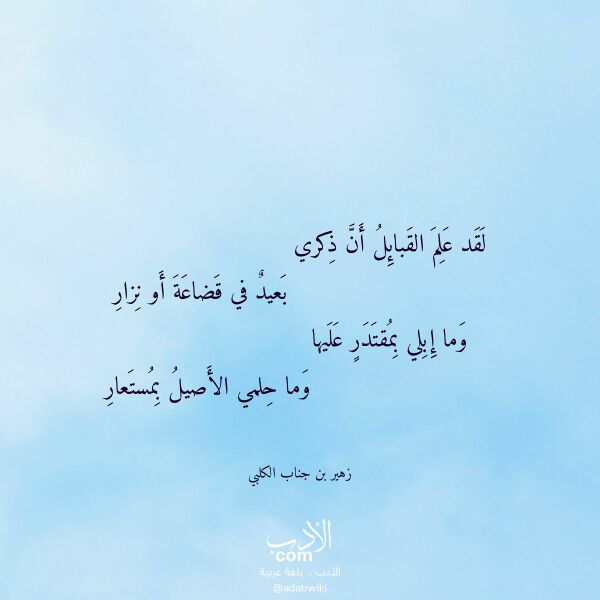 لَقَد عَلِمَ القَبائِلُ أَنَّ ذِكري
بَعيدٌ في قَضاعَةَ أَو نِزارِ
وَما إِبِلي بِمُقتَدَرٍ عَلَيها
وَما حِلمي الأَصيلُ بِمُستَعارِ
زهير بن جناب الكلبي
الأدب
com
الأدب .. بلغة عربية
@adabwiki